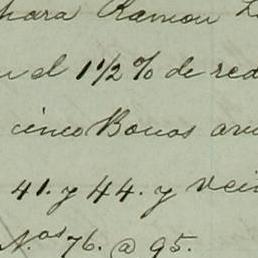 hara Ramon L
n el 1 1/2 % de red
cinco Bonos
41. y 44. y vein
N.os 76. @ 95.